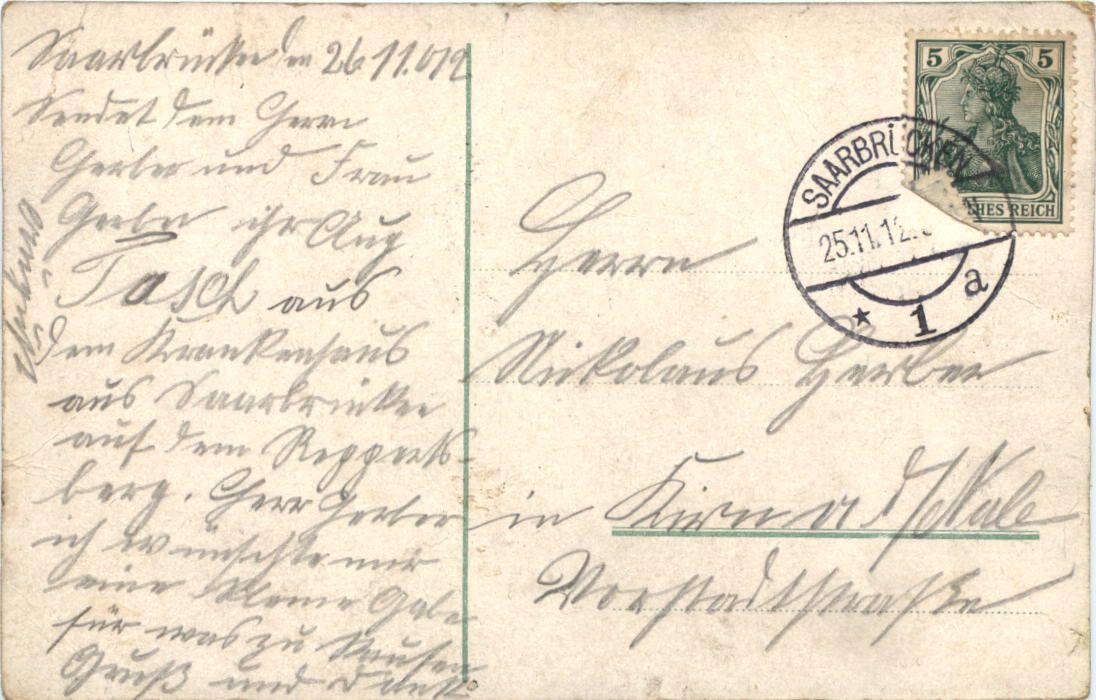 Saarbrücken 26.11.012
Sendet dem Herrn
Gerber und Frau
Gerber ihr Aug
Tasch aus
dem Krankenhaus
aus Saarbrücken
auf dem Repperts-
berg. Herr Gerber
ich wünschte mir
eine kleine Gabe
für was zu kaufen
Gruß und Dank
5 5
SAARBRÜCKEN
25.11.12.
* 1 a
HES REICH
Herrn
Nikolaus Gerber
in Kirn a d/Nahe
Vorstadtstraße